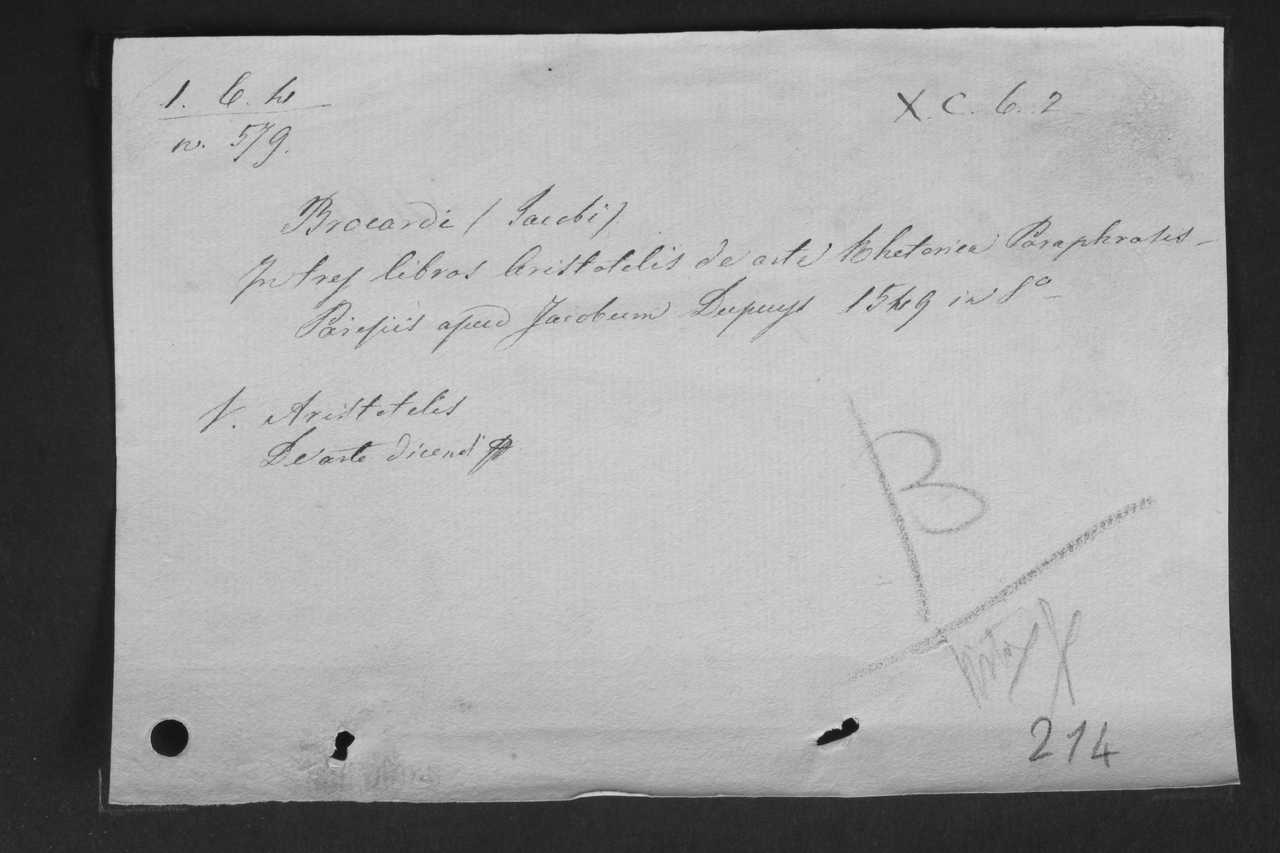 1. C. 4
n. 579.
X. C. 6. 2
Brocardi (Jacobi)
In tres libros Aristotelis de arte Rhetorica Paraphrasis –
Parisiis apud Jacobum Dupuys 1549 in 8º
V. Aristotelis
De arte dicendi
B
214